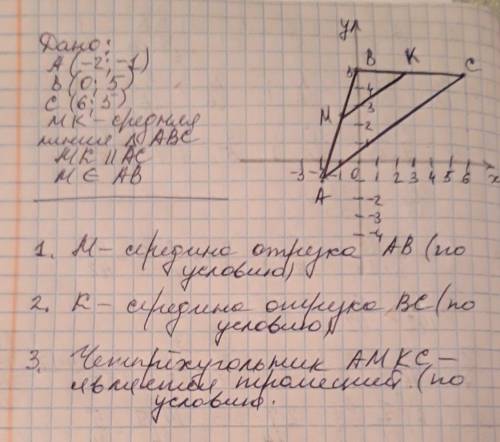 Дано:
A (-2; -1)
B (0; 5)
C (6; 5)
MK - средняя
линия △ABC
MK || AC
M ∈ AB
y
B
K
C
5
4
3
M
2
1
-3 -2 -1 0 1 2 3 4 5 6 x
A
-2
-3
-4
1. M - середина отрезка AB (по
условию)
2. K - середина отрезка BC (по
условию)
3. Четырёхугольник AMKC -
является трапецией (по
условию.